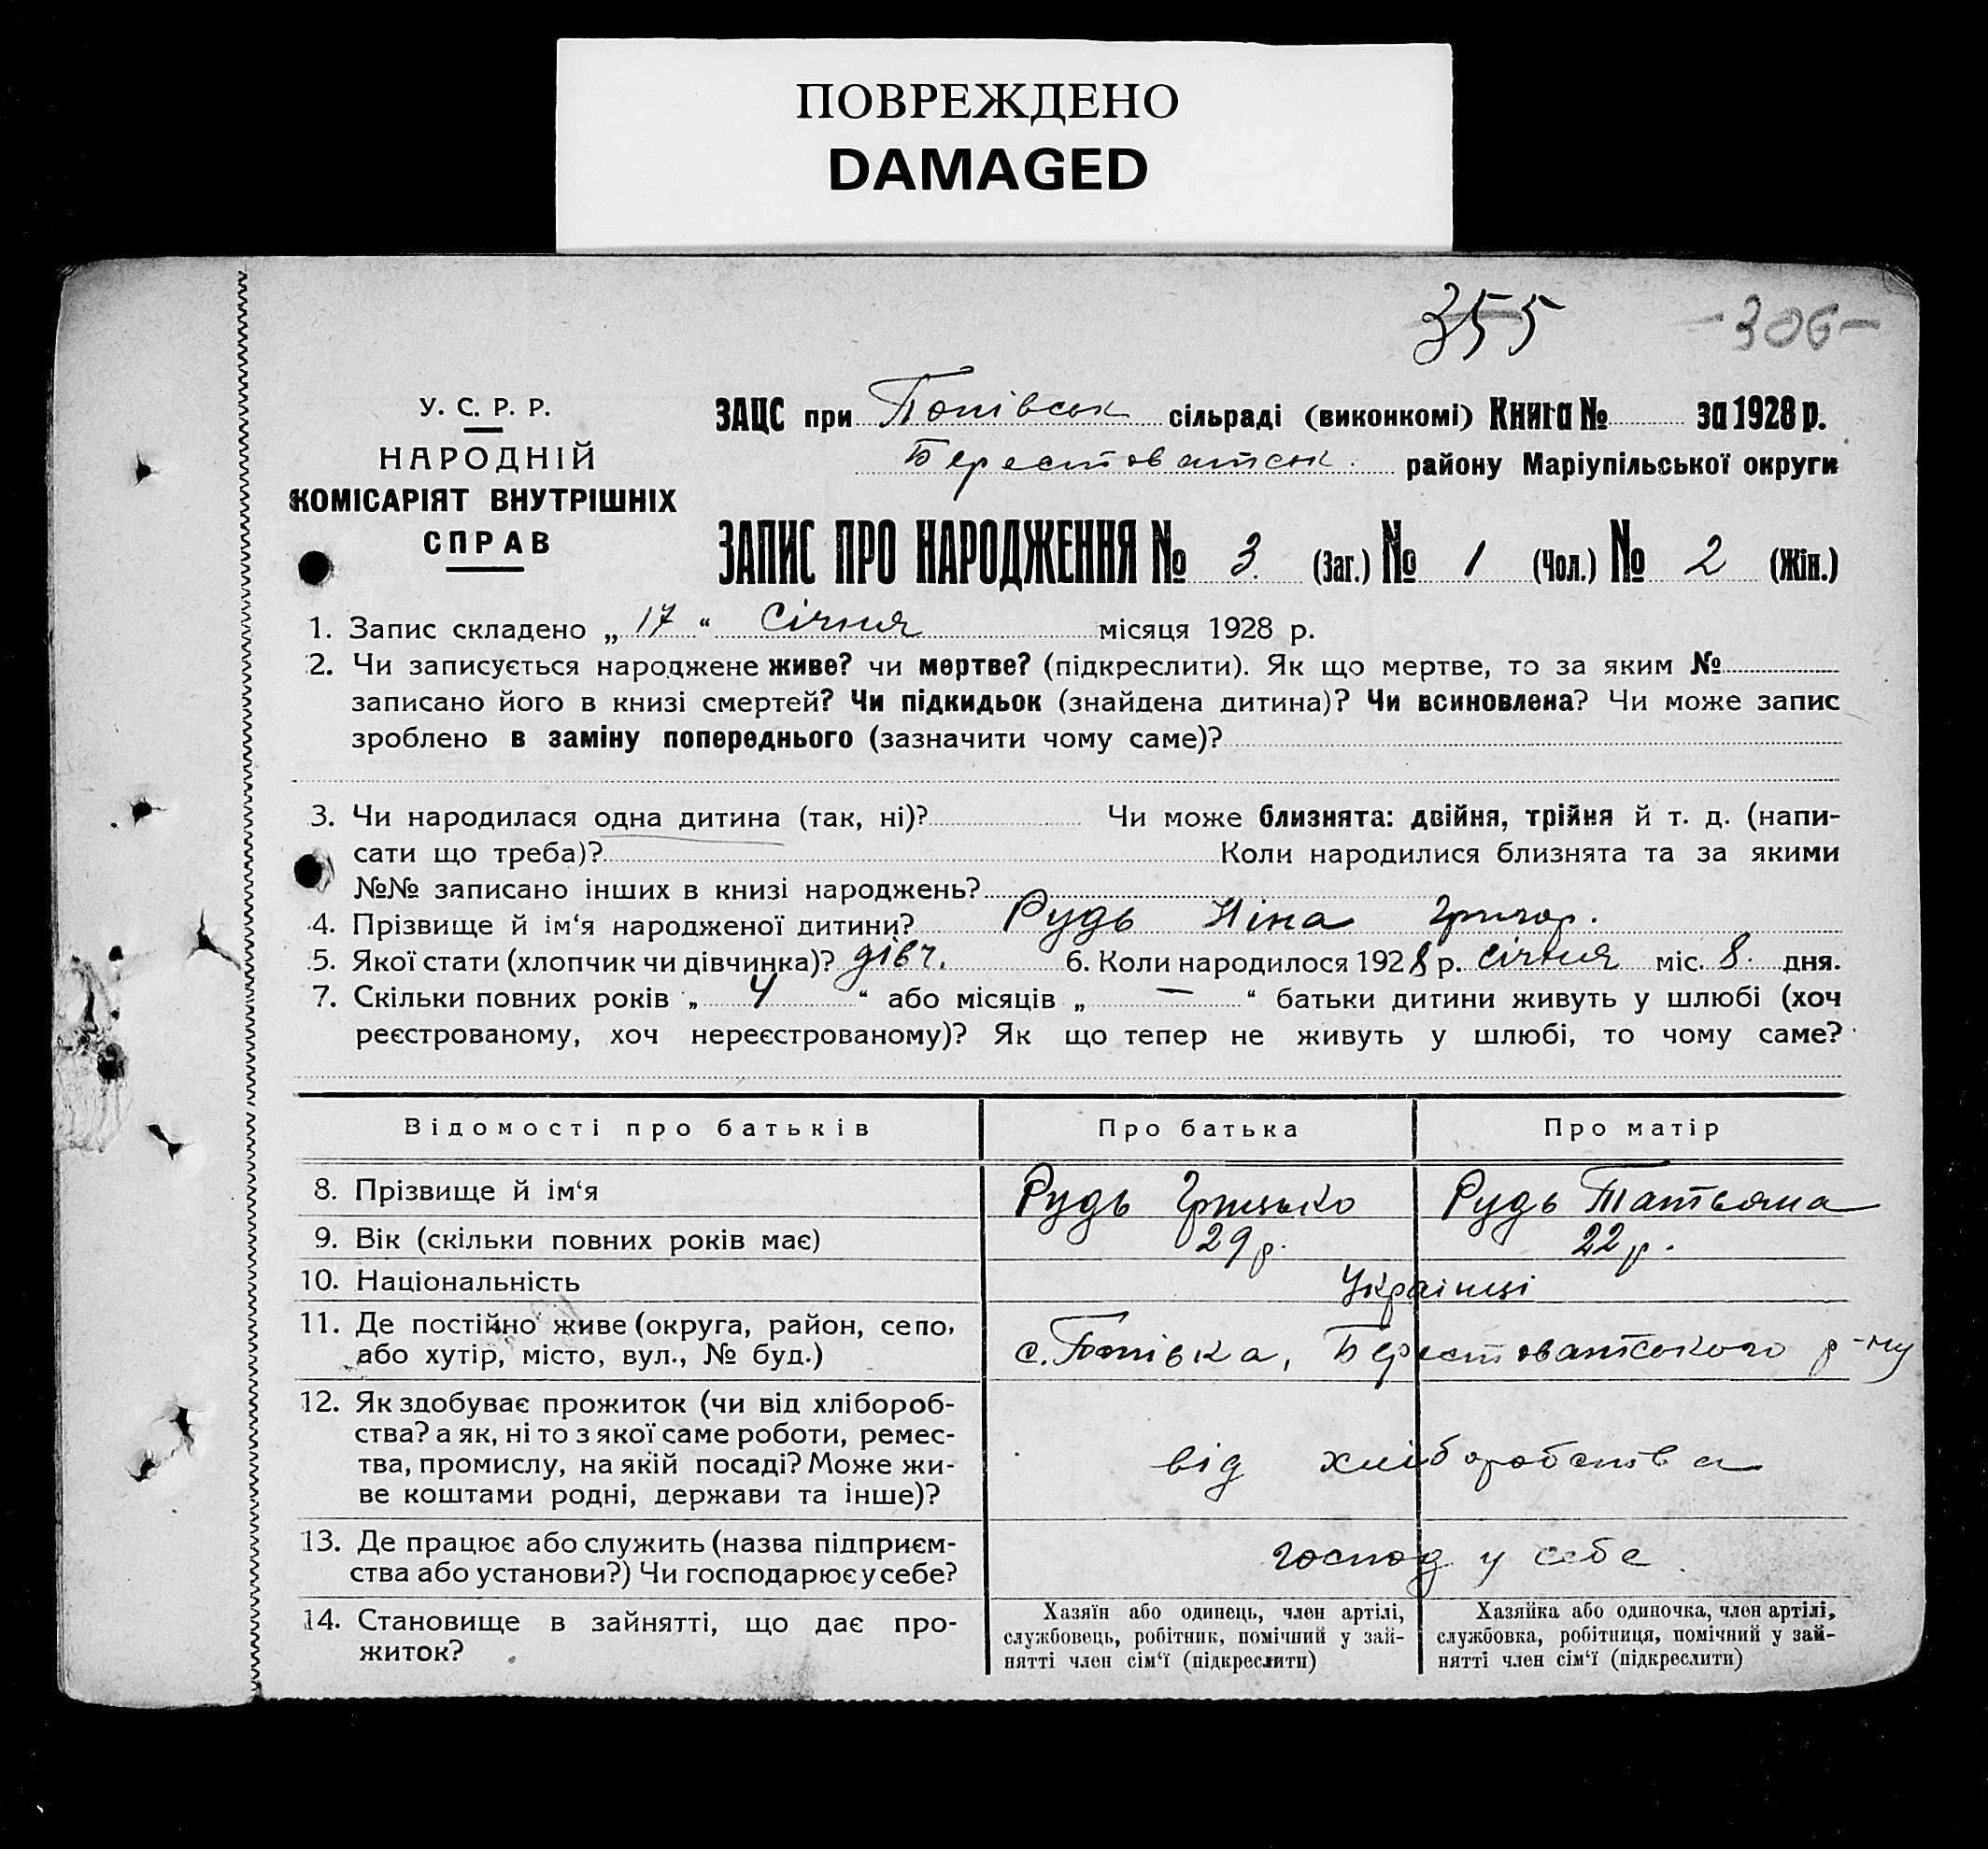 ПОВРЕЖДЕНО
DAMAGED
355
-306-
У. С. Р. Р.
НАРОДНІЙ
КОМІСАРІЯТ ВНУТРІШНІХ
СПРАВ
ЗАЦС при Попівськ сільраді (виконкомі) Книга № за 1928 р.
Берестоватськ. району Маріупільської округи
ЗАПИС ПРО НАРОДЖЕННЯ № 3. (Заг.) № 1 (Чол.) № 2 (Жін.)
1. Запис складено „ 17 “ Січня місяця 1928 р.
2. Чи записується народжене живе? чи мертве? (підкреслити). Як що мертве, то за яким №
записано його в книзі смертей? Чи підкидьок (знайдена дитина)? Чи всиновлена? Чи може запис
зроблено в заміну попереднього (зазначити чому саме)?
3. Чи народилася одна дитина (так, ні)? Чи може близнята: двійня, трійня й т. д. (напи-
сати що треба)? Коли народилися близнята та за якими
№№ записано інших в книзі народжень?
4. Прізвище й ім‘я народженої дитини? Рудь Ніна Григор.
5. Якої стати (хлопчик чи дівчинка)? дівч. 6. Коли народилося 1928 р. січня міс. 8. дня.
7. Скільки повних років „ 4 “ або місяців „ — “ батьки дитини живуть у шлюбі (хоч
реєстрованому, хоч нереєстрованому)? Як що тепер не живуть у шлюбі, то чому саме?
Відомості про батьків Про батька Про матір
8. Прізвище й ім‘я Рудь Грицько Рудь Татьяна
9. Вік (скільки повних років має) 29 р. 22 р.
10. Національність Українці
11. Де постійно живе (округа, район, село,
або хутір, місто, вул., № буд.) с. Попівка, Берестоватського р-ну
12. Як здобуває прожиток (чи від хлібороб-
ства? а як, ні то з якої саме роботи, ремес-
тва, промислу, на якій посаді? Може жи-
ве коштами родні, держави та інше)?
від хліборобства
13. Де працює або служить (назва підприєм-
ства або установи?) Чи господарює у себе?
господ у себе
14. Становище в зайнятті, що дає про-
житок?
Хазяїн або одинець, член артілі,
службовець, робітник, помічний у зай-
нятті член сім‘ї (підкреслити)
Хазяйка або одиночка, член артілі,
службовка, робітниця, помічний у зай-
нятті член сім‘ї (підкреслити)